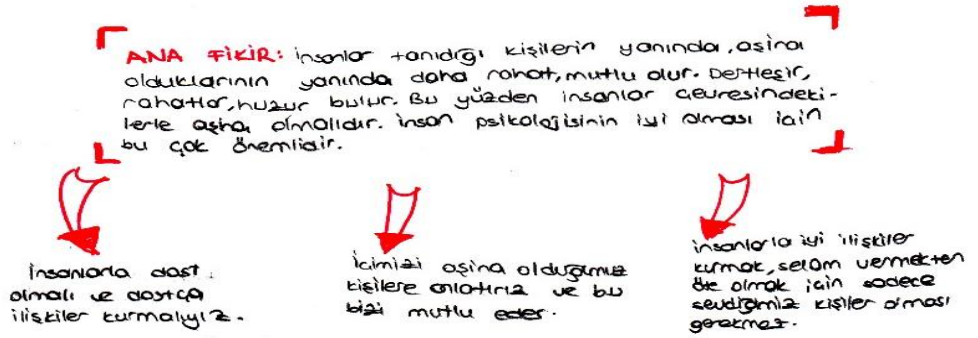 ANA FİKİR: insanlar tanıdığı kişilerin yanında, aşina
olduklarının yanında daha rahat, mutlu olur. Dertleşir,
rahatlar, huzur bulur. Bu yüzden insanlar çevresindeki-
lerle aşina olmalıdır. insan psikolojisinin iyi olması için
bu çok önemlidir.
insanlarla dost
olmalı ve dostça
ilişkiler kurmalıyız.
İçimizi aşina olduğumuz
kişilere anlatırız ve bu
bizi mutlu eder.
insanlarla iyi ilişkiler
kurmak, selam vermekten
öte olmak için sadece
sevdiğimiz kişiler olması
gerekmez.